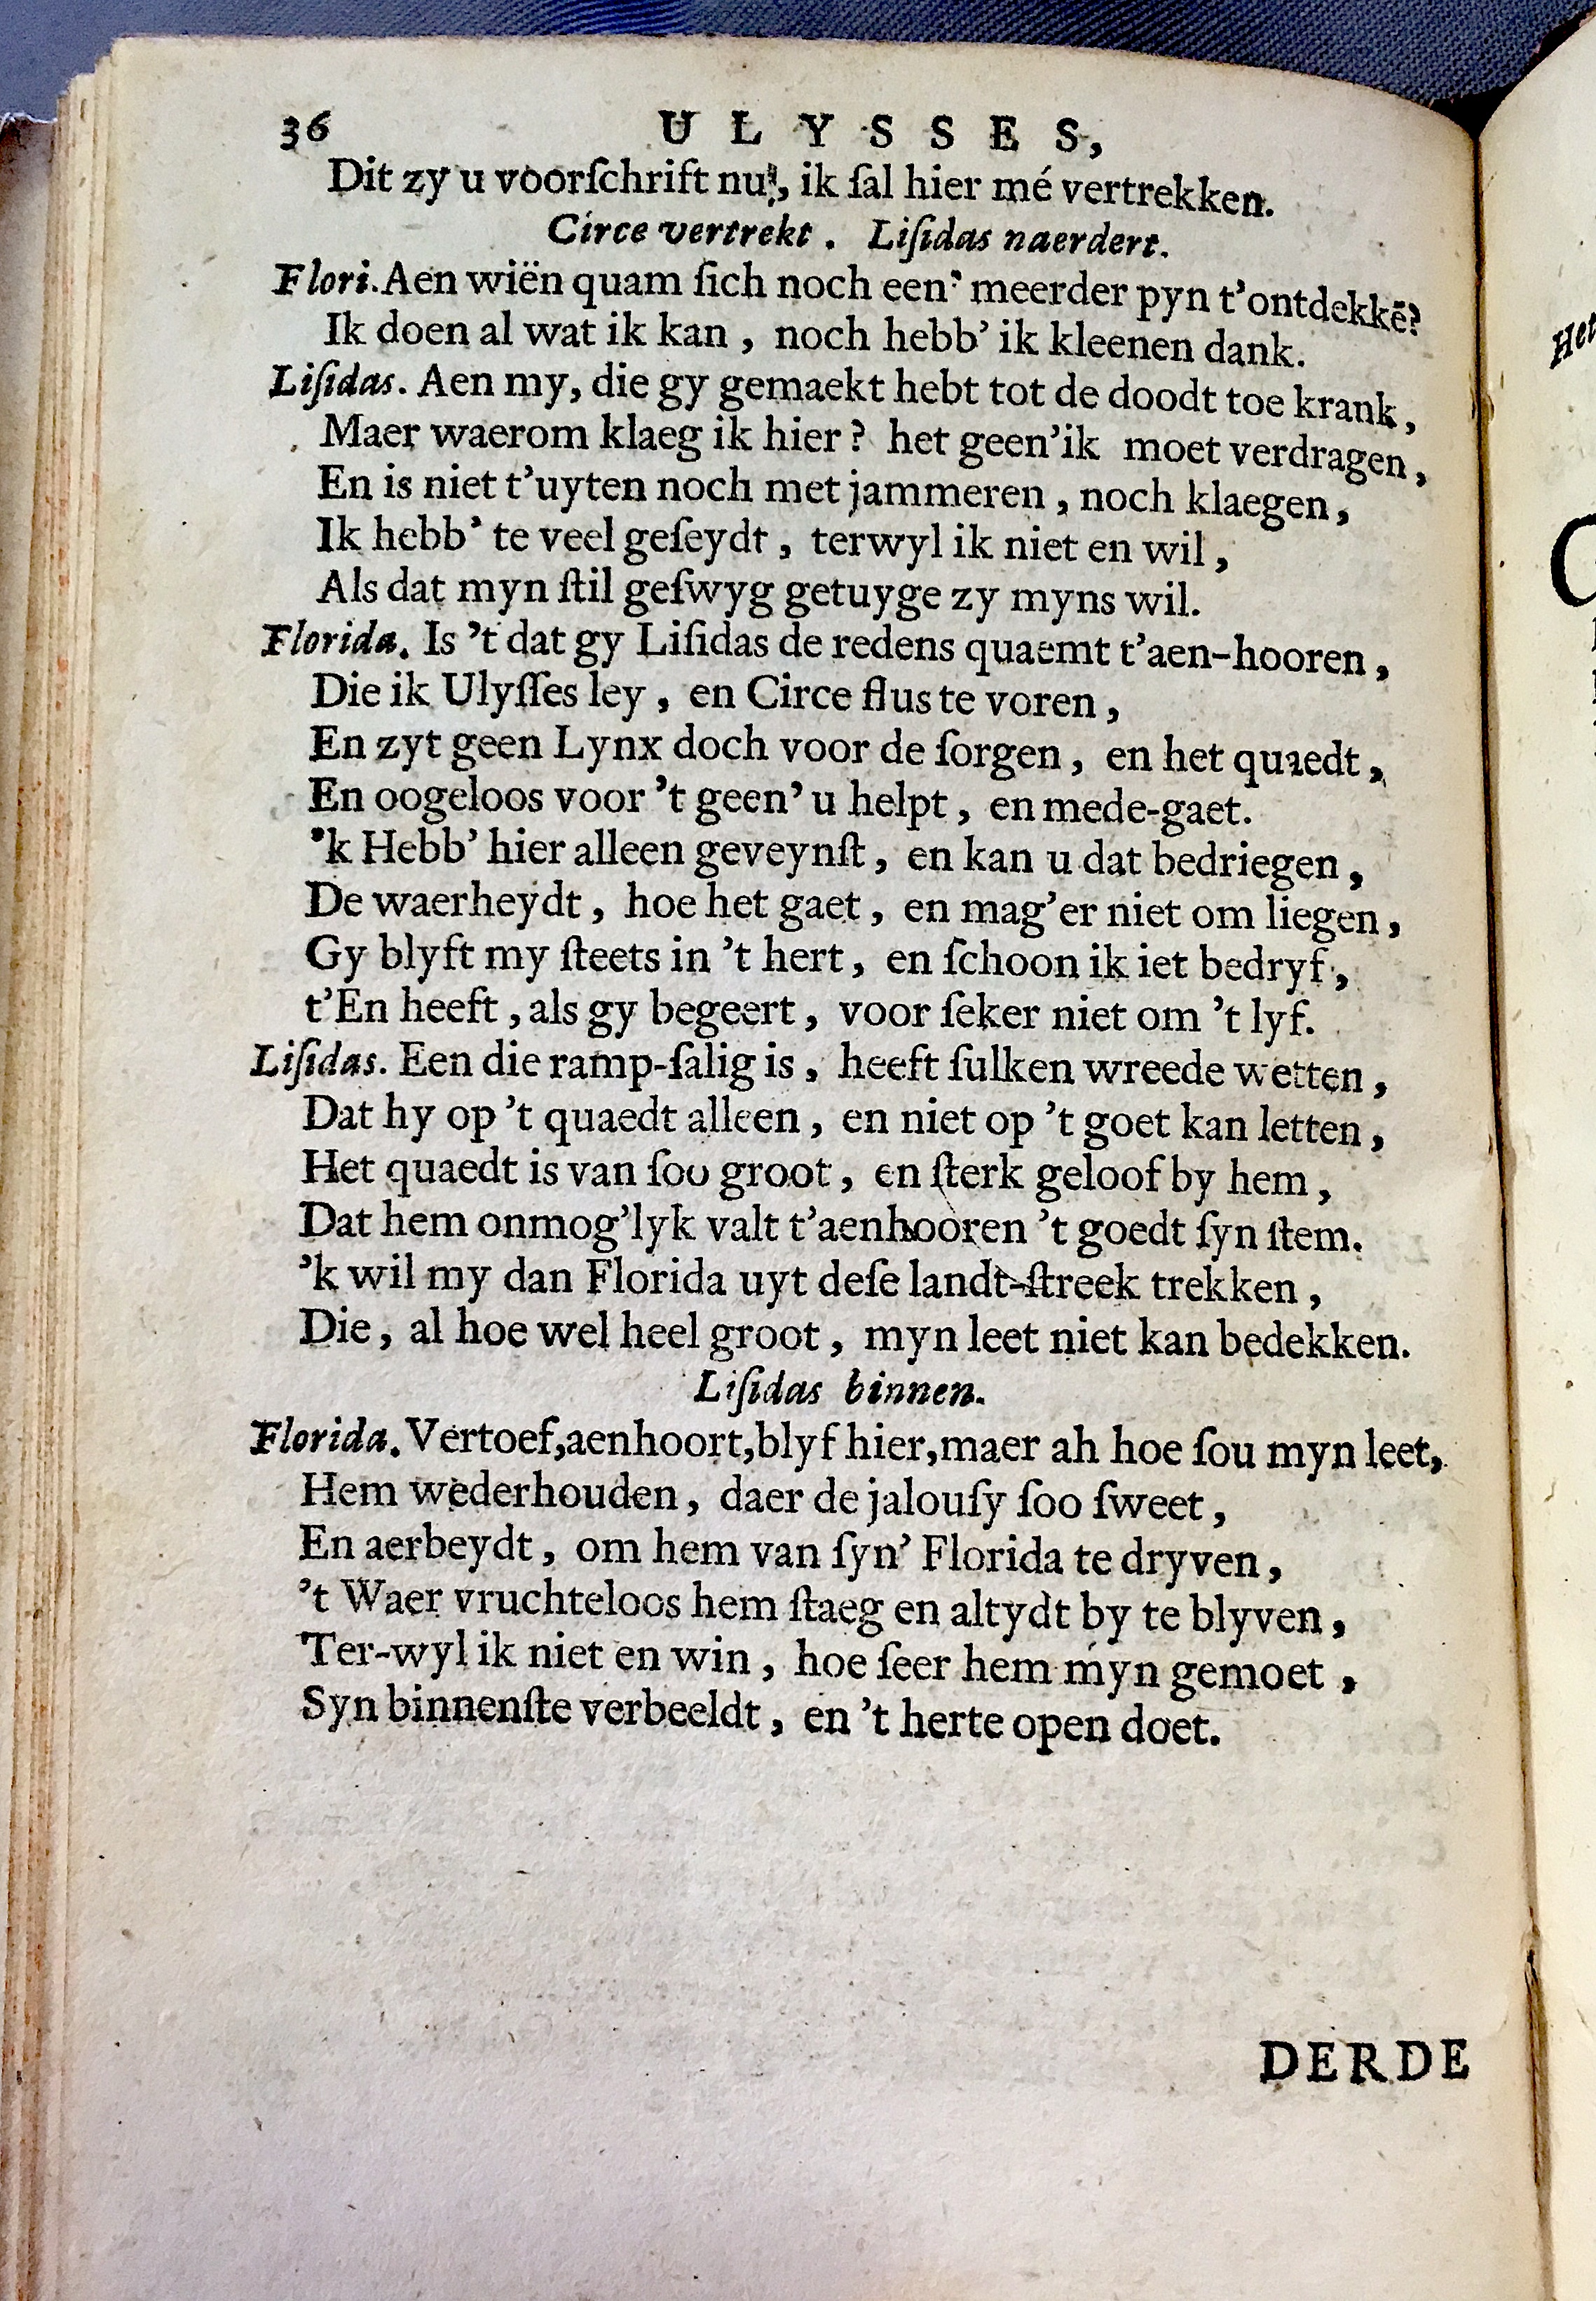 36 ULYSSES,
Dit zy u voorſchrift nu, ik ſal hier mé vertrekken.
Circe vertrekt. Liſidas naerdert.
Flori. Aen wiën quam ſich noch een' meerder pyn t'ontdekkē?
Ik doen al wat ik kan, noch hebb' ik kleenen dank.
Liſidas. Aen my, die gy gemaekt hebt tot de doodt toe krank,
Maer waerom klaeg ik hier? het geen'ik moet verdragen,
En is niet t'uyten noch met jammeren, noch klaegen,
Ik hebb' te veel geſeydt, terwyl ik niet en wil,
Als dat myn ſtil geſwyg getuyge zy myns wil.
Florida. Is 't dat gy Liſidas de redens quaemt t'aen-hooren,
Die ik Ulyſſes ley, en Circe flus te voren,
En zyt geen Lynx doch voor de ſorgen, en het quaedt,
En oogeloos voor 't geen' u helpt, en mede-gaet.
'k Hebb' hier alleen geveynſt, en kan u dat bedriegen,
De waerheydt, hoe het gaet, en mag'er niet om liegen,
Gy blyft my ſteets in 't hert, en ſchoon ik iet bedryf,
t'En heeft, als gy begeert, voor ſeker niet om 't lyf.
Liſidas. Een die ramp-ſalig is, heeft ſulken wreede wetten,
Dat hy op 't quaedt alleen, en niet op 't goet kan letten,
Het quaedt is van ſou groot, en ſterk geloof by hem,
Dat hem onmog'lyk valt t'aenhooren 't goedt ſyn ſtem.
'k wil my dan Florida uyt deſe landt-ſtreek trekken,
Die, al hoe wel heel groot, myn leet niet kan bedekken.
Liſidas binnen.
Florida. Vertoef,aenhoort,blyf hier,maer ah hoe ſou myn leet,
Hem wederhouden, daer de jalouſy ſoo ſweet,
En aerbeydt, om hem van ſyn' Florida te dryven,
't Waer vruchteloos hem ſtaeg en altydt by te blyven,
Ter-wyl ik niet en win, hoe ſeer hem myn gemoet,
Syn binnenſte verbeeldt, en 't herte open doet.
DERDE
Het